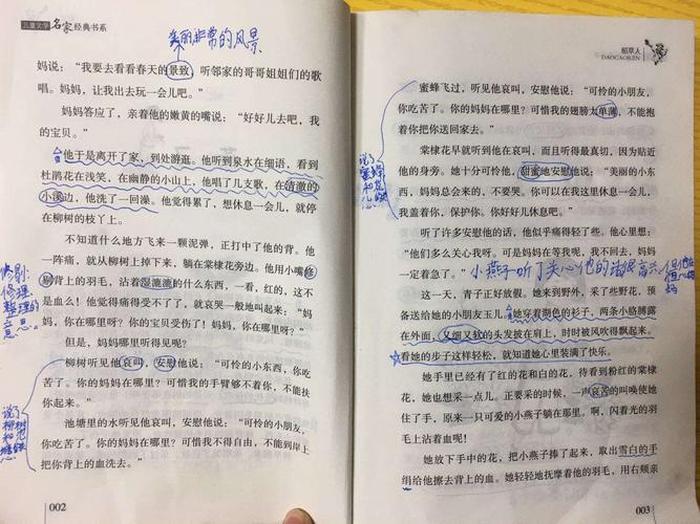 儿童文学名家经典书系
美丽非常的风景
妈说:“我要去看看春天的景致,听邻家的哥哥姐姐们的歌
唱。妈妈,让我出去玩一会儿吧。”
妈妈答应了,亲着他的嫩黄的嘴说:“好好儿去吧,我
的宝贝。”
他于是离开了家,到处游逛。他听到泉水在细语,看到
杜鹃花在浅笑,在幽静的小山上,他唱了几支歌,在清澈的
小溪边,他洗了一回澡。他觉得累了,想休息一会儿,就停
在柳树的枝丫上。
不知道什么地方飞来一颗泥弹,正打中了他的背。他
一阵痛,就从柳树上掉下来,躺在棠棣花旁边。他用小嘴修
剔背上的羽毛,沾着湿漉漉的什么东西,一看,红的,这不
是血么!他觉得痛得受不了了,就哀哭一般地叫起来:“妈
妈,你在哪里呀?你的宝贝受伤了!妈妈,你在哪里呀?”
但是,妈妈哪里听见呢?
柳树听见他哀叫,安慰他说:“可怜的小东西,你吃苦
了。你的妈妈在哪里?可惜我的手臂够不着你,不能扶
你起来。”
池塘里的水听见他哀叫,安慰他说:“可怜的小朋友,
你吃苦了。你的妈妈在哪里?可惜我不得自由,不能到岸上
把你背上的血洗去。”
修剔:
修理
整理的
意思。
说了
柳树
和
池塘
002
稻草人
DAOCAOREN
蜜蜂飞过,听见他哀叫,安慰他说:“可怜的小朋友,
你吃苦了。你的妈妈在哪里?可惜我的翅膀太单薄,不能抱
着你把你送回家去。”
棠棣花早就听到他在哀叫,而且听得最真切,因为贴近
他的身旁。她十分可怜他,甜蜜地安慰他说:“美丽的小东
西,妈妈总会来的,不要哭。你可以在我这里休息一会儿,
我盖着你,保护你。你好好儿休息吧。”
听了许多安慰他的话,他似乎痛得轻了些。他心里想:
“他们多么关心我呀。可是妈妈在等我呢,我不回去,妈妈
一定着急了。”
小燕子听了关心他的话很高兴,但他
这一天,青子正好放假。她来到野外,采了些野花,预
备送给她的小朋友玉儿。她穿着湖色的衫子,两条小胳膊露
在外面,又细又软的头发披在肩上,时时被风吹得飘起来。
看她的步子这样轻松,就知道她心里装满了快乐。
她手里已经有了红的花和白的花,待看到粉红的棠棣
花,她也想采一点儿。正要采的时候,一声哀苦的叫唤使她
住了手,原来一只可爱的小燕子躺在那里。啊,闪着光的羽
毛上沾着血呢!
她放下手中的花,把小燕子捧了起来,取出雪白的手
绢给他擦去背上的血。她轻轻地抚摩着他的羽毛,用右颊亲
003